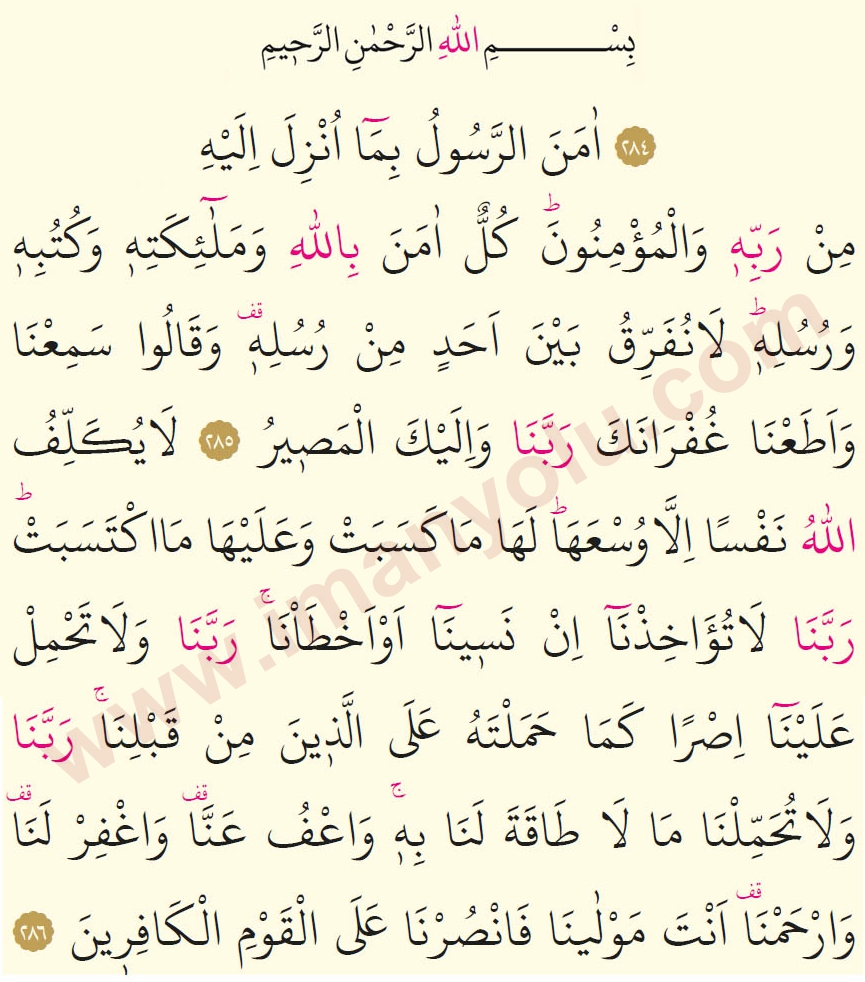 بِسْــــــــــمِ اللّٰهِ الرَّحْمٰنِ الرَّح۪يمِ
﴿٢٨٤﴾ اٰمَنَ الرَّسُولُ بِمَٓا اُنْزِلَ اِلَيْهِ
مِنْ رَبِّه۪ وَالْمُؤْمِنُونَۜ كُلٌّ اٰمَنَ بِاللّٰهِ وَمَلٰٓئِكَتِه۪ وَكُتُبِه۪
وَرُسُلِه۪ۜ لَانُفَرِّقُ بَيْنَ اَحَدٍ مِنْ رُسُلِه۪ قف وَقَالُوا سَمِعْنَا
وَاَطَعْنَا غُفْرَانَكَ رَبَّنَا وَاِلَيْكَ الْمَص۪يرُ ﴿٢٨٥﴾ لَايُكَلِّفُ
اللّٰهُ نَفْسًا اِلَّا وُسْعَهَاۜ لَهَا مَاكَسَبَتْ وَعَلَيْهَا مَااكْتَسَبَتْۜ
رَبَّنَا لَاتُؤَاخِذْنَٓا اِنْ نَس۪ينَٓا اَوْاَخْطَأْنَاۚ رَبَّنَا وَلَاتَحْمِلْ
عَلَيْنَٓا اِصْرًا كَمَا حَمَلْتَهُ عَلَى الَّذ۪ينَ مِنْ قَبْلِنَاۚ رَبَّنَا
وَلَاتُحَمِّلْنَا مَا لَا طَاقَةَ لَنَا بِه۪ۚ وَاعْفُ عَنَّا قف وَاغْفِرْ لَنَا قف
وَارْحَمْنَا قف اَنْتَ مَوْلٰينَا فَانْصُرْنَا عَلَى الْقَوْمِ الْكَافِر۪ينَ ﴿٢٨٦﴾
www.imanyolu.com